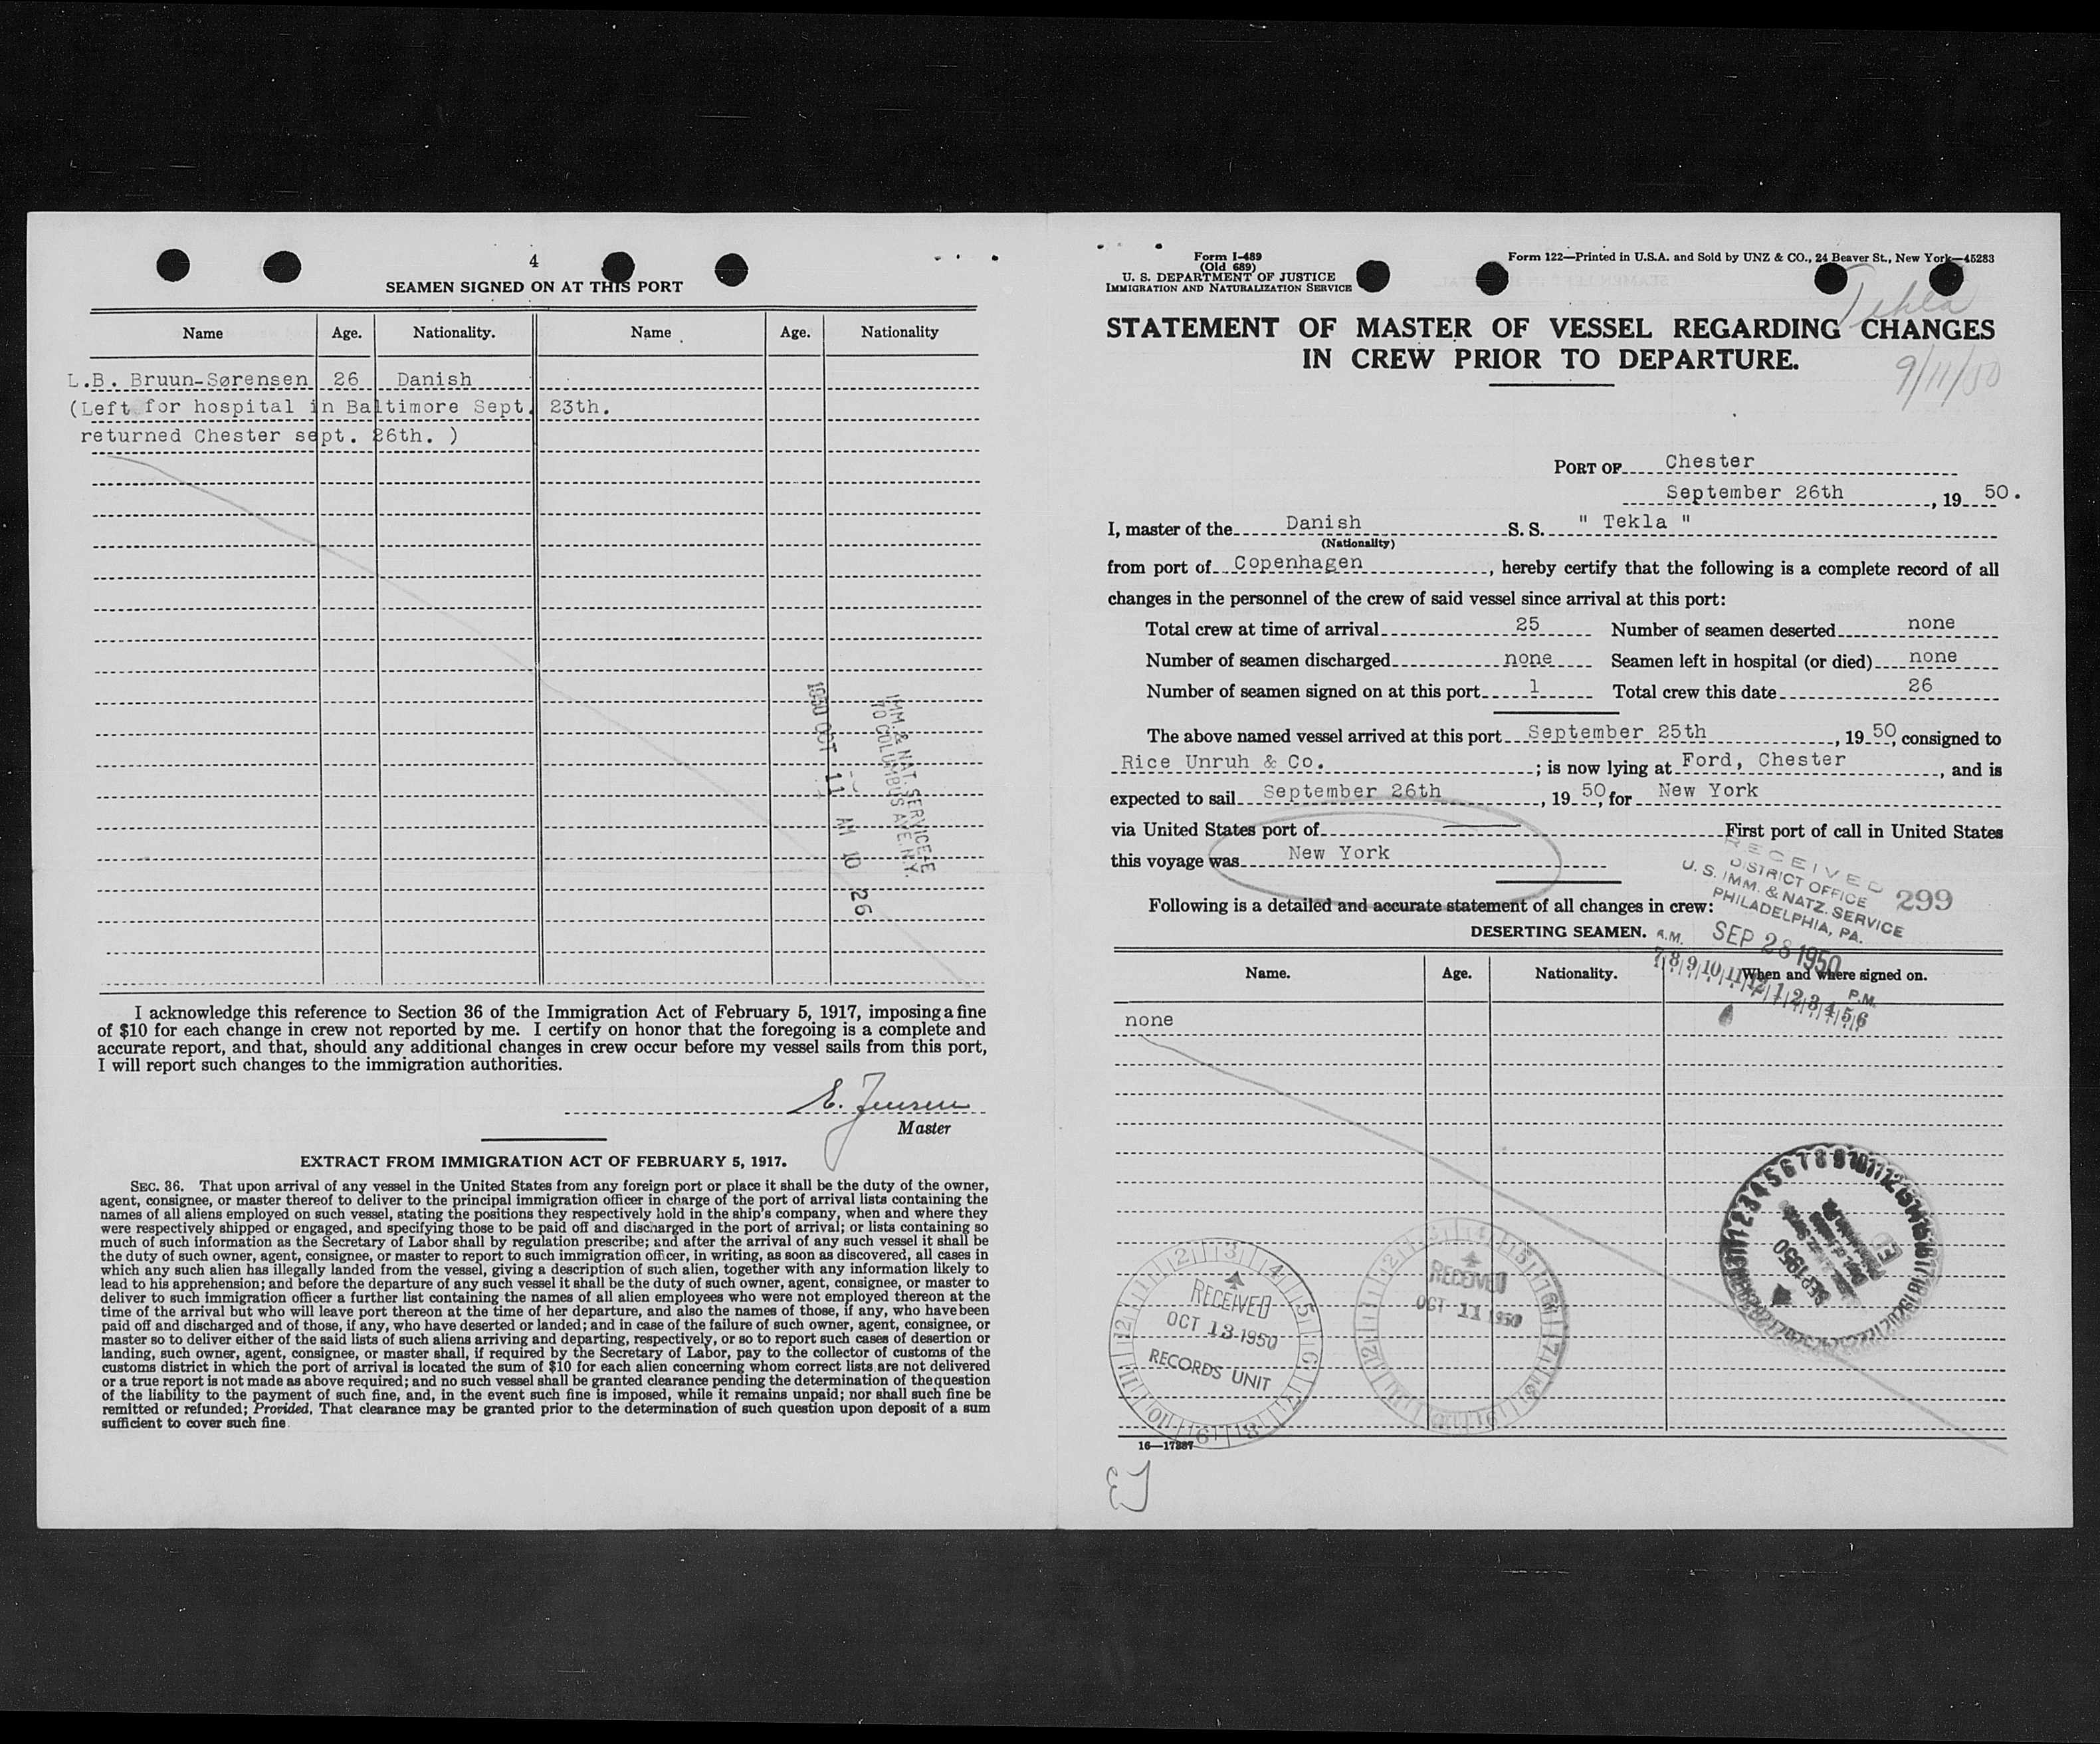 4
SEAMEN SIGNED ON AT THIS PORT
Name Age. Nationality. Name Age. Nationality
L.B. Bruun-Sørensen 26 Danish
(Left for hospital in Baltimore Sept. 23th.
returned Chester sept. 26th. )
IMM. & NAT. SERVICE-E
70 COLUMBUS AVE. N.Y.
1950 OCT 11 AM 10 26
I acknowledge this reference to Section 36 of the Immigration Act of February 5, 1917, imposing a fine
of $10 for each change in crew not reported by me. I certify on honor that the foregoing is a complete and
accurate report, and that, should any additional changes in crew occur before my vessel sails from this port,
I will report such changes to the immigration authorities.
E. Jensen
Master
EXTRACT FROM IMMIGRATION ACT OF FEBRUARY 5, 1917.
SEC. 36. That upon arrival of any vessel in the United States from any foreign port or place it shall be the duty of the owner,
agent, consignee, or master thereof to deliver to the principal immigration officer in charge of the port of arrival lists containing the
names of all aliens employed on such vessel, stating the positions they respectively hold in the ship's company, when and where they
were respectively shipped or engaged, and specifying those to be paid off and discharged in the port of arrival; or lists containing so
much of such information as the Secretary of Labor shall by regulation prescribe; and after the arrival of any such vessel it shall be
the duty of such owner, agent, consignee, or master to report to such immigration officer, in writing, as soon as discovered, all cases in
which any such alien has illegally landed from the vessel, giving a description of such alien, together with any information likely to
lead to his apprehension; and before the departure of any such vessel it shall be the duty of such owner, agent, consignee, or master to
deliver to such immigration officer a further list containing the names of all alien employees who were not employed thereon at the
time of the arrival but who will leave port thereon at the time of her departure, and also the names of those, if any, who have been
paid off and discharged and of those, if any, who have deserted or landed; and in case of the failure of such owner, agent, consignee, or
master so to deliver either of the said lists of such aliens arriving and departing, respectively, or so to report such cases of desertion or
landing, such owner, agent, consignee, or master shall, if required by the Secretary of Labor, pay to the collector of customs of the
customs district in which the port of arrival is located the sum of $10 for each alien concerning whom correct lists are not delivered
or a true report is not made as above required; and no such vessel shall be granted clearance pending the determination of the question
of the liability to the payment of such fine, and, in the event such fine is imposed, while it remains unpaid; nor shall such fine be
remitted or refunded; Provided, That clearance may be granted prior to the determination of such question upon deposit of a sum
sufficient to cover such fine.
Form I-489
(Old 689)
U. S. DEPARTMENT OF JUSTICE
IMMIGRATION AND NATURALIZATION SERVICE
Form 122—Printed in U.S.A. and Sold by UNZ & CO., 24 Beaver St., New York—45283
Tekla
STATEMENT OF MASTER OF VESSEL REGARDING CHANGES
IN CREW PRIOR TO DEPARTURE.
9/11/50
PORT OF Chester
September 26th, 19 50.
I, master of the Danish S. S. " Tekla "
(Nationality)
from port of Copenhagen, hereby certify that the following is a complete record of all
changes in the personnel of the crew of said vessel since arrival at this port:
Total crew at time of arrival 25 Number of seamen deserted none
Number of seamen discharged none Seamen left in hospital (or died) none
Number of seamen signed on at this port 1 Total crew this date 26
The above named vessel arrived at this port September 25th, 19 50, consigned to
Rice Unruh & Co.; is now lying at Ford, Chester, and is
expected to sail September 26th, 19 50, for New York
via United States port of — First port of call in United States
this voyage was New York
RECEIVED
DISTRICT OFFICE
U. S. IMM. & NATZ. SERVICE
PHILADELPHIA, PA.
299
SEP 28 1950
A.M. P.M.
7 8 9 10 11 12 1 2 3 4 5 6
Following is a detailed and accurate statement of all changes in crew:
DESERTING SEAMEN.
Name. Age. Nationality. When and where signed on.
none
RECEIVED
OCT 13 1950
RECORDS UNIT
RECEIVED
OCT 11 1950
SEP 1950
16—17887